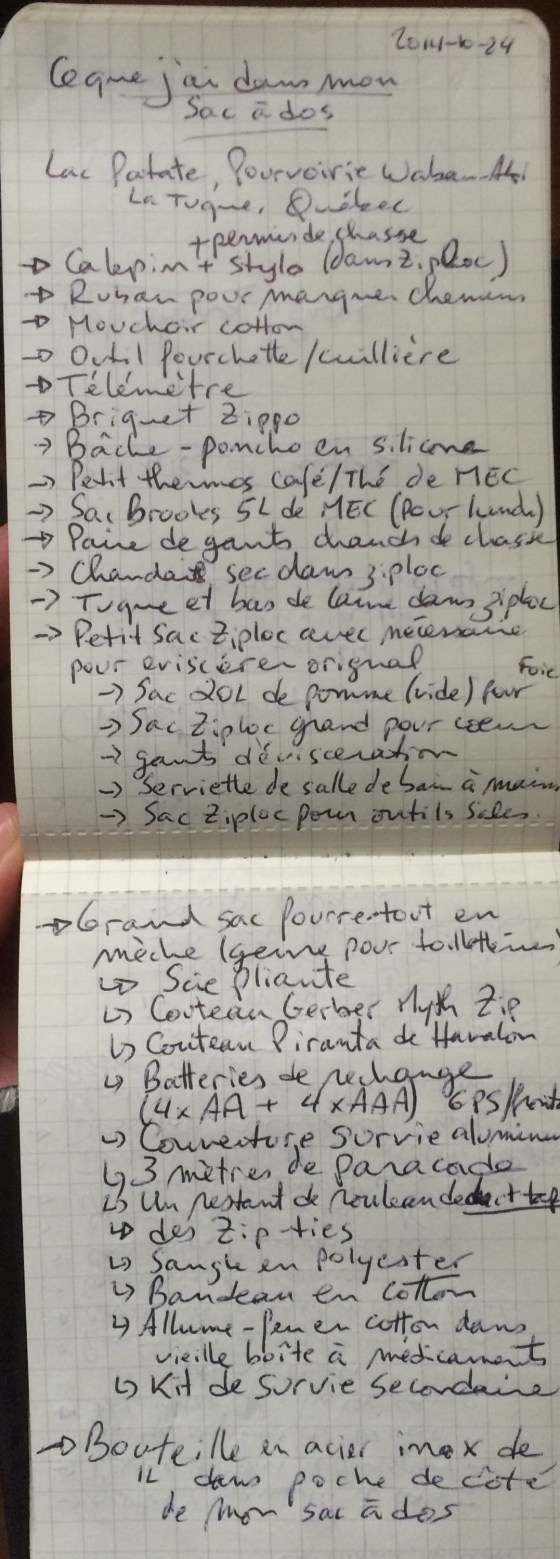 2014-10-24
Ce que j'ai dans mon
sac à dos
Lac Patate, Pourvoirie Waban-Aki
La Tuque, Québec
+ permis de chasse
→ Calepin + stylo (dans Ziploc)
→ Ruban pour marquer chemins
→ Mouchoir cotton
→ Outil fourchette/cuillière
→ Télémètre
→ Briquet Zippo
→ Bâche - poncho en silicone
→ Petit thermos café/Thé de MEC
→ Sac Brooks 5L de MEC (pour lunch)
→ Paire de gants chauds de chasse
→ Chandail sec dans ziploc
→ Tuque et bas de laine dans ziploc
→ Petit sac Ziploc avec nécessaire
pour eviscérer orignal
→ Sac 20L de pomme (vide) pour Foie
→ Sac Ziploc grand pour coeur
→ gants d'évisceration
→ Serviette de salle de bain à mains
→ Sac Ziploc pour outils sales.
→ Grand sac fourre-tout en
mèche (genre pour toilletteries)
↳ Scie pliante
↳ Couteau Gerber Myth Zip
↳ Couteau Piranta de Havalon
↳ Batteries de rechange
(4xAA + 4xAAA) GPS/
↳ Couverture survie aluminum
↳ 3 mètres de paracode
↳ Un restant de rouleau de duct tap
↳ des Zip-ties
↳ Sangle en polyester
↳ Bandeau en cotton
↳ Allume-feu en cotton dans
vieille boîte à médicaments
↳ Kit de survie secondaire
→ Bouteille en acier inox de
1L dans poche de côté
de mon sac à dos